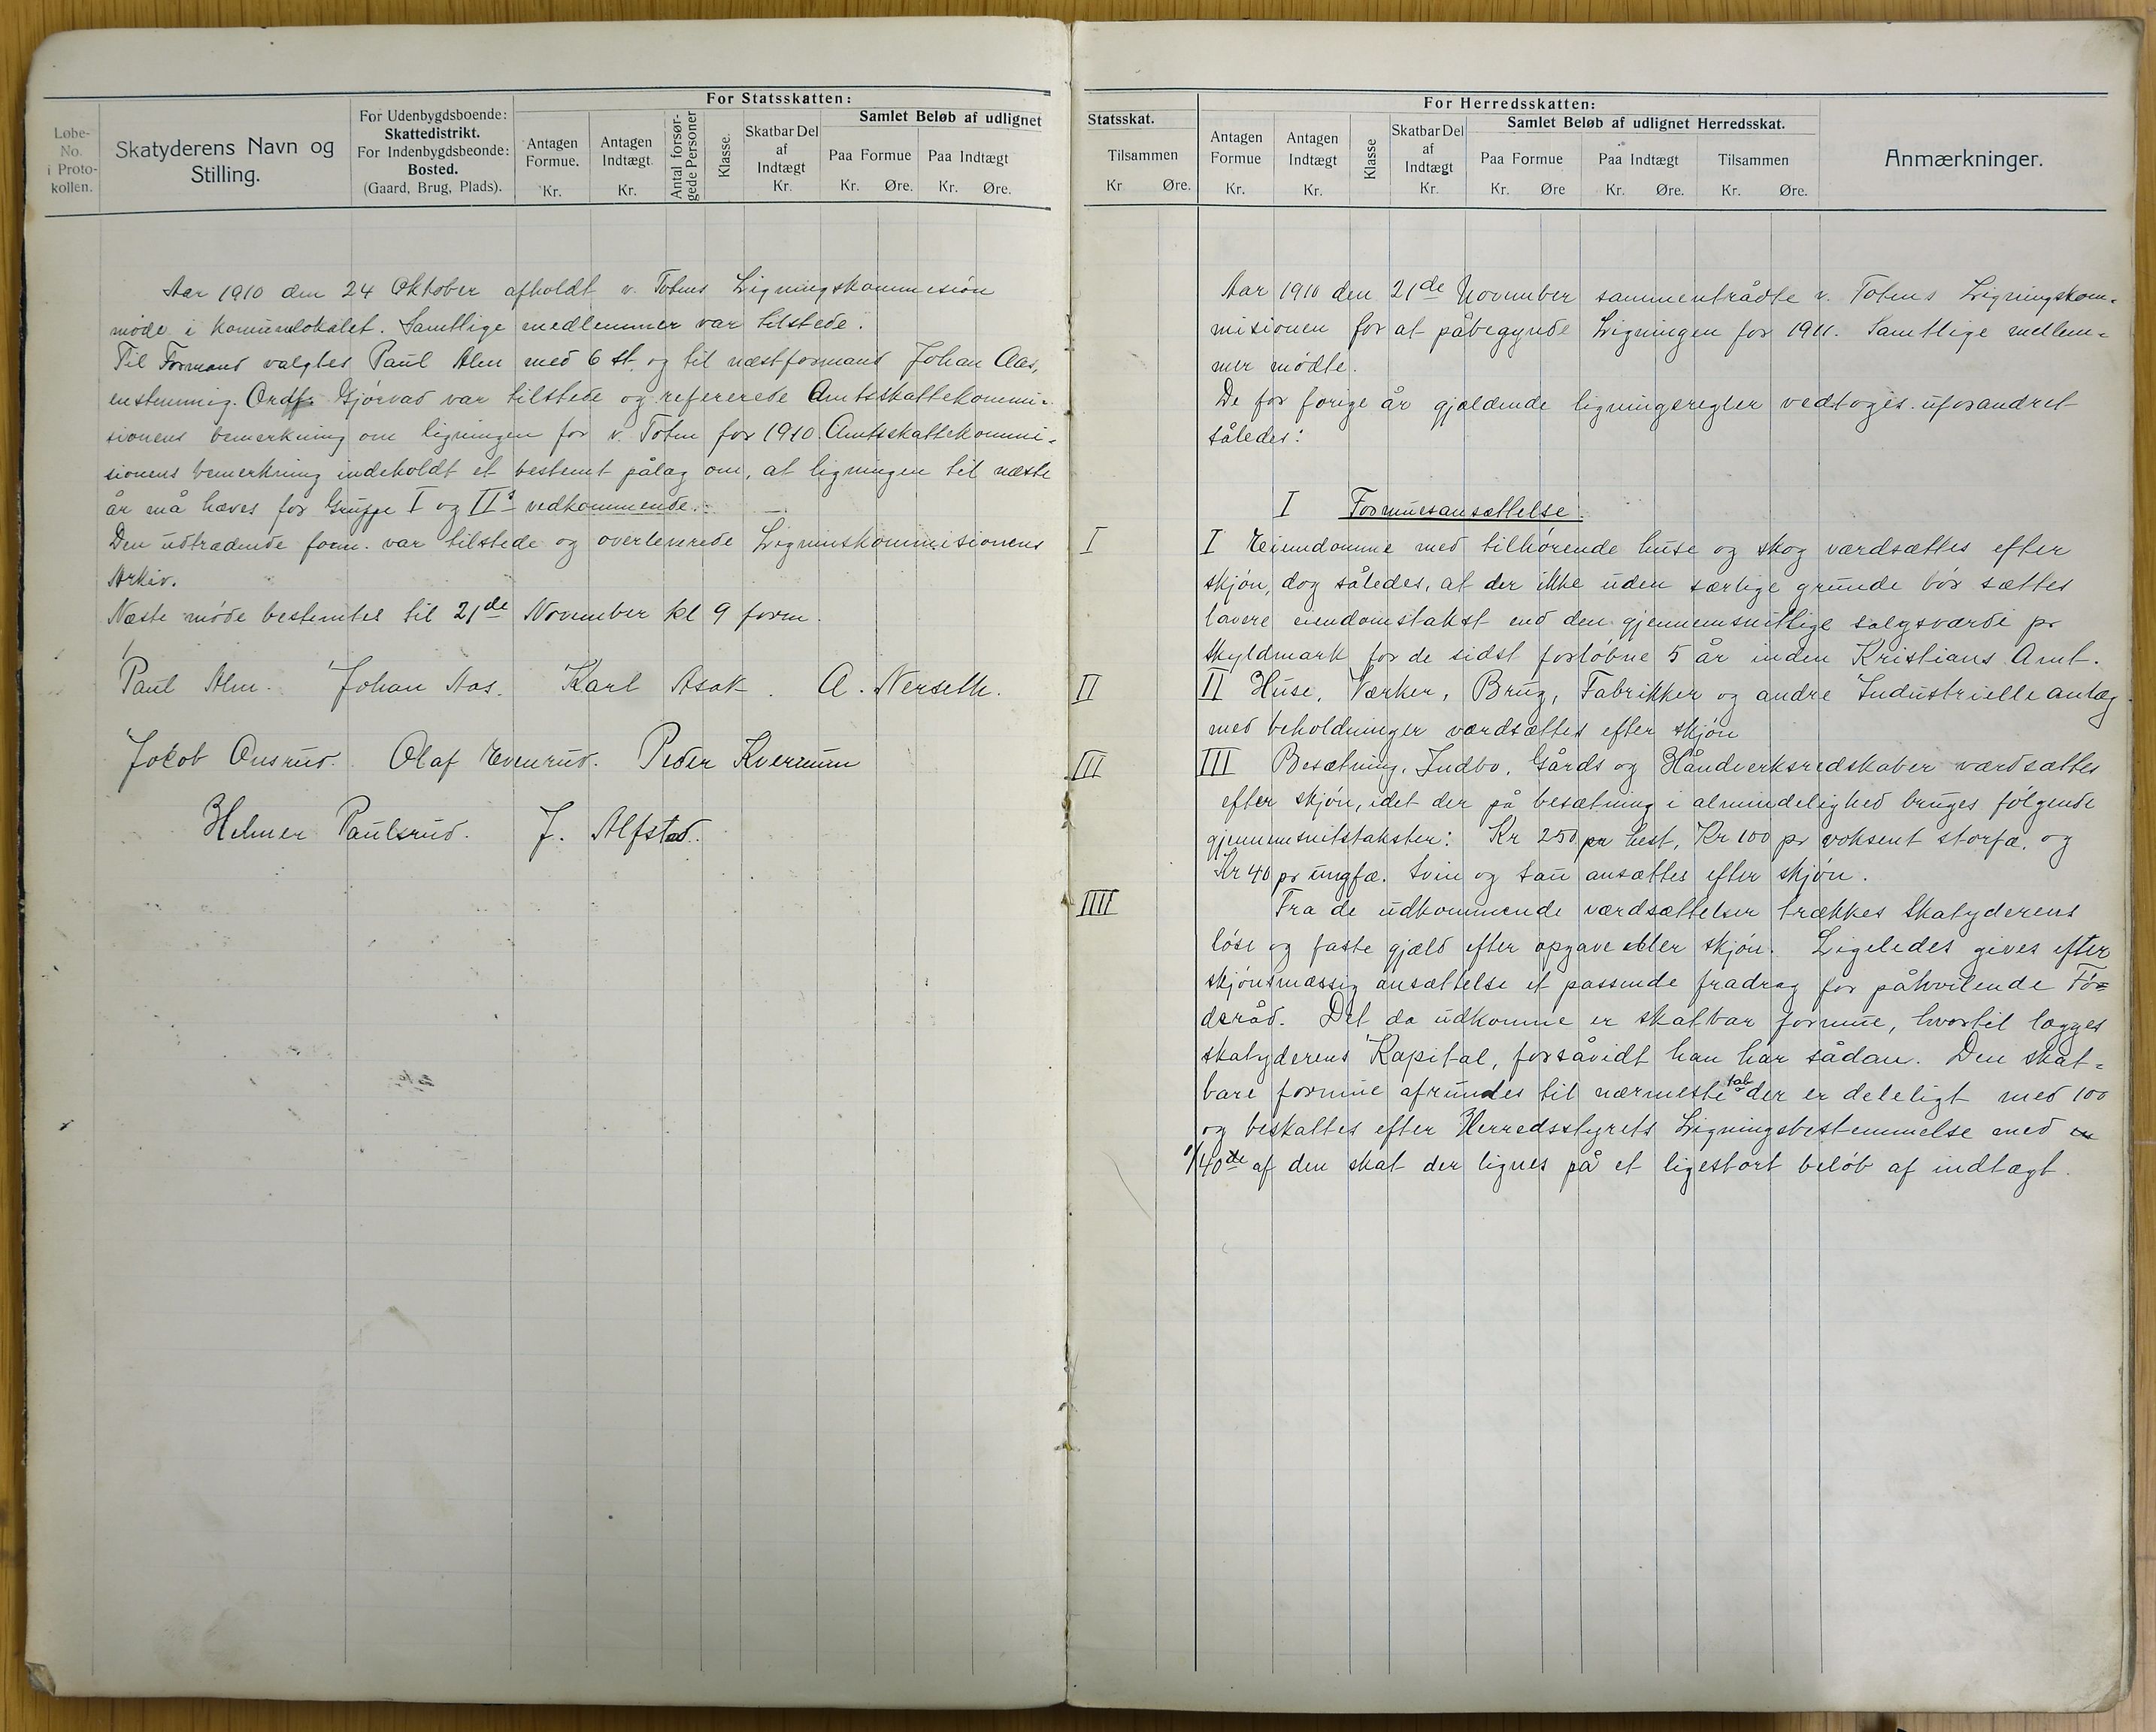 For Statsskatten:
Løbe-
No.
i Proto-
kollen.
Skatyderens Navn og
Stilling.
For Udenbygdsboende:
Skattedistrikt.
For Indenbygdsbeonde:
Bosted.
(Gaard, Brug, Plads).
Antagen
Formue.
Kr.
Antagen
Indtægt.
Kr.
Antal forsør-
gede Personer
Klasse.
Skatbar Del
af
Indtægt
Kr.
Samlet Beløb af udlignet
Paa Formue
Kr. Øre.
Paa Indtægt
Kr. Øre.
Aar 1910 den 24 Oktober afholdt v. Totens Ligningskommesion
møde i komunelokalet. Samtlige medlemmer var tilstede.
Til Formand valgtes Paul Alm med 6 st. og til næstformand Johan Aas,
enstemmig. Ordf. Gjörvad var tilstede og refererede Amtsskattekommi-
sionens bemerkning om ligningen for v. Toten for 1910. Amtsskattekommi-
sionens bemerkning indeholdt et bestemt pålag om, at ligningen til næste
år må hæves for Gruppe I og II's vedkommende.
Den udtrædende form. var tilstede og overleverede Ligninskommisionens
Arkiv.
Næste møde bestemtes til 21de November kl 9 form.
Paul Alm. Johan Aas. Karl Asak. A. Nerseth.
Jokob Onsrud. Olaf Evenrud. Peder Kvernum
Helmer Paulsrud. J. Alfstad.
Statsskat.
Tilsammen
Kr. Øre.
For Herredsskatten:
Antagen
Formue
Kr.
Antagen
Indtægt
Kr.
Klasse
Skatbar Del
af
Indtægt
Kr.
Samlet Beløb af udlignet Herredsskat.
Paa Formue
Kr. Øre
Paa Indtægt
Kr. Øre.
Tilsammen
Kr. Øre.
Anmærkninger.
Aar 1910 den 21de November sammentrådte v. Totens Ligningskom-
misionen for at påbegynde Ligningen for 1911. Samtlige medlem-
mer mødte.
De for forige år gjældende ligningsregler vedtoges uforandret
således:
I Formuesansættelse.
I I Eiendomme med tilhørende huse og skog værdsættes efter
skjön, dog således, at der ikke uden særlige grunde bör sættes
lavere eiendomstakst end den gjennemsnitlige salgsværdi pr
skyldmark for de sidst forløbne 5 år inden Kristians Amt.
II II Huse, Værker, Brug, Fabrikker og andre Industrielle anlæg
med beholdninger værdsættes efter skjön
III III Besætning, Indbo, Gårds og Håndverksredskaber værdsættes
efter skjön, idet der på besætning i almindelighed bruges følgende
gjennemsnitstakster: Kr 250 pr hest, Kr 100 pr voksent storfæ, og
Kr 40 pr ungfæ. Svin og sau ansættes efter skjön.
IIII Fra de udkommende værdsættelser trækkes Skatyderens
løse og faste gjæld efter opgave eller skjön. Ligeledes gives efter
skjönsmæssig ansættelse et passende fradrag for påhvilende Fö-
deråd. Det da udkomne er skatbar formue, hvortil lægges
skatyderens Kapital, forsåvidt han har sådan. Den skat-
bare formue afrundes til nærmeste tab der er deleligt med 100
og beskattes efter Herredsstyrets Ligningsbestemmelse med en
1/40de af den skat der lignes på et ligestort beløb af indtægt.